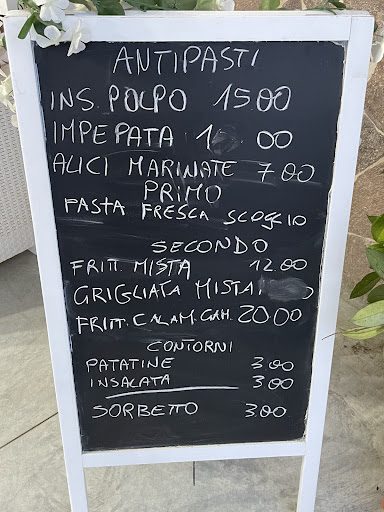 ANTIPASTI
INS. POLPO 15 00
IMPEPATA 1 00
ALICI MARINATE 7 00
PRIMO
PASTA FRESCA SCOGLIO
SECONDO
FRITT. MISTA 12.00
GRIGLIATA MISTA
FRITT. CALAM. GAM. 20 00
CONTORNI
PATATINE 3 00
INSALATA 3 00
SORBETTO 3.00